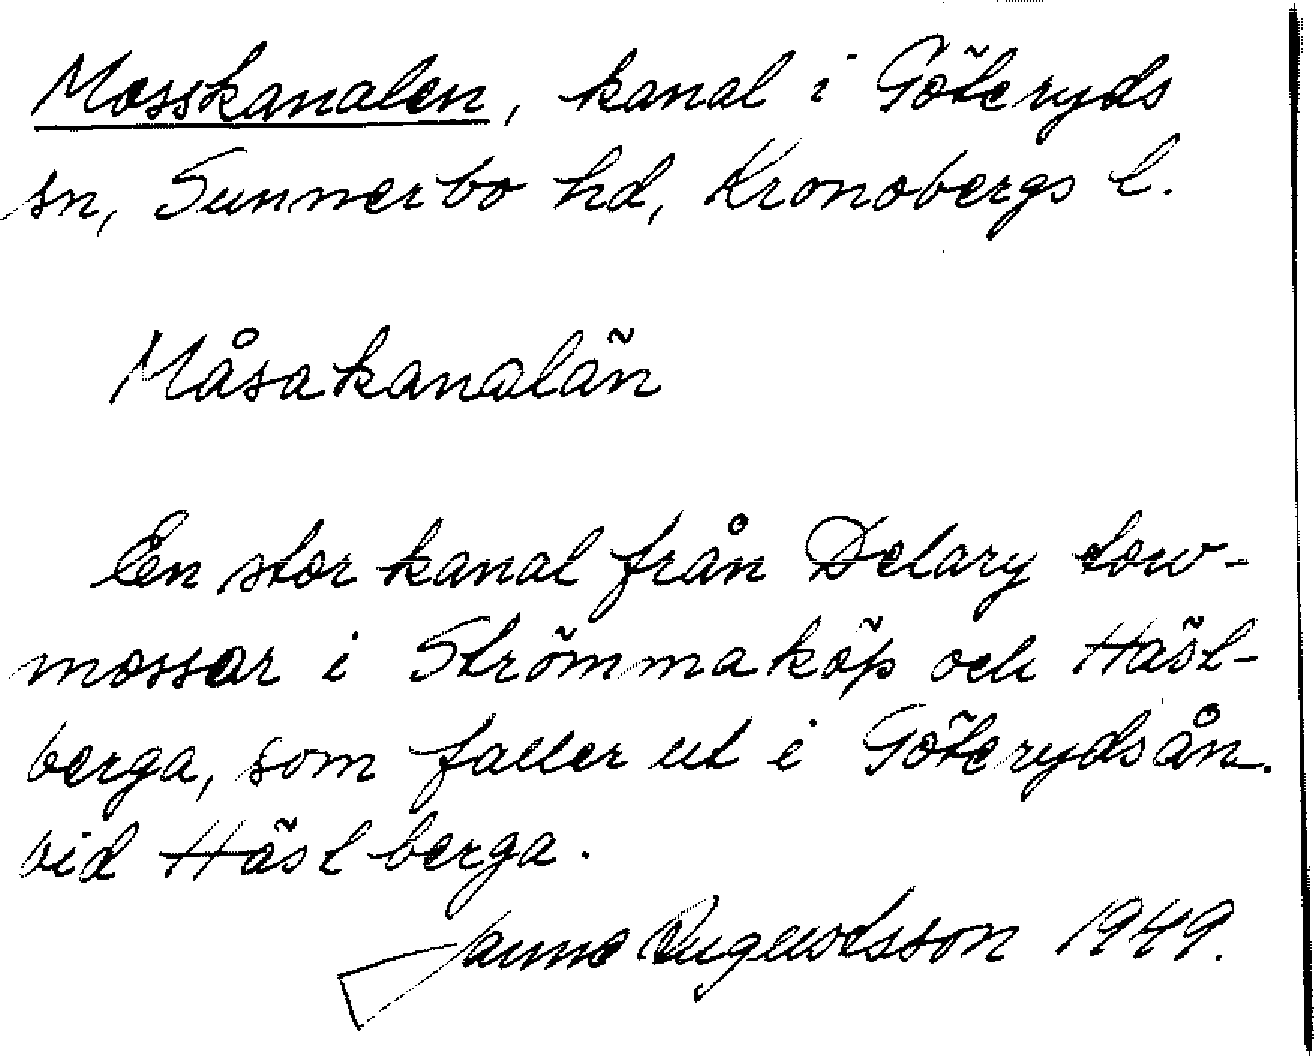 Mosskanalen, kanal i Göteryds
sn, Sunnerbo hd, Kronobergs l.
Måsakanalän
En stor kanal från Delary torv-
mossar i Strömmaköp och Häst-
berga, som faller ut i Göterydsån.
vid Hästberga.
Janne Augustsson 1949.